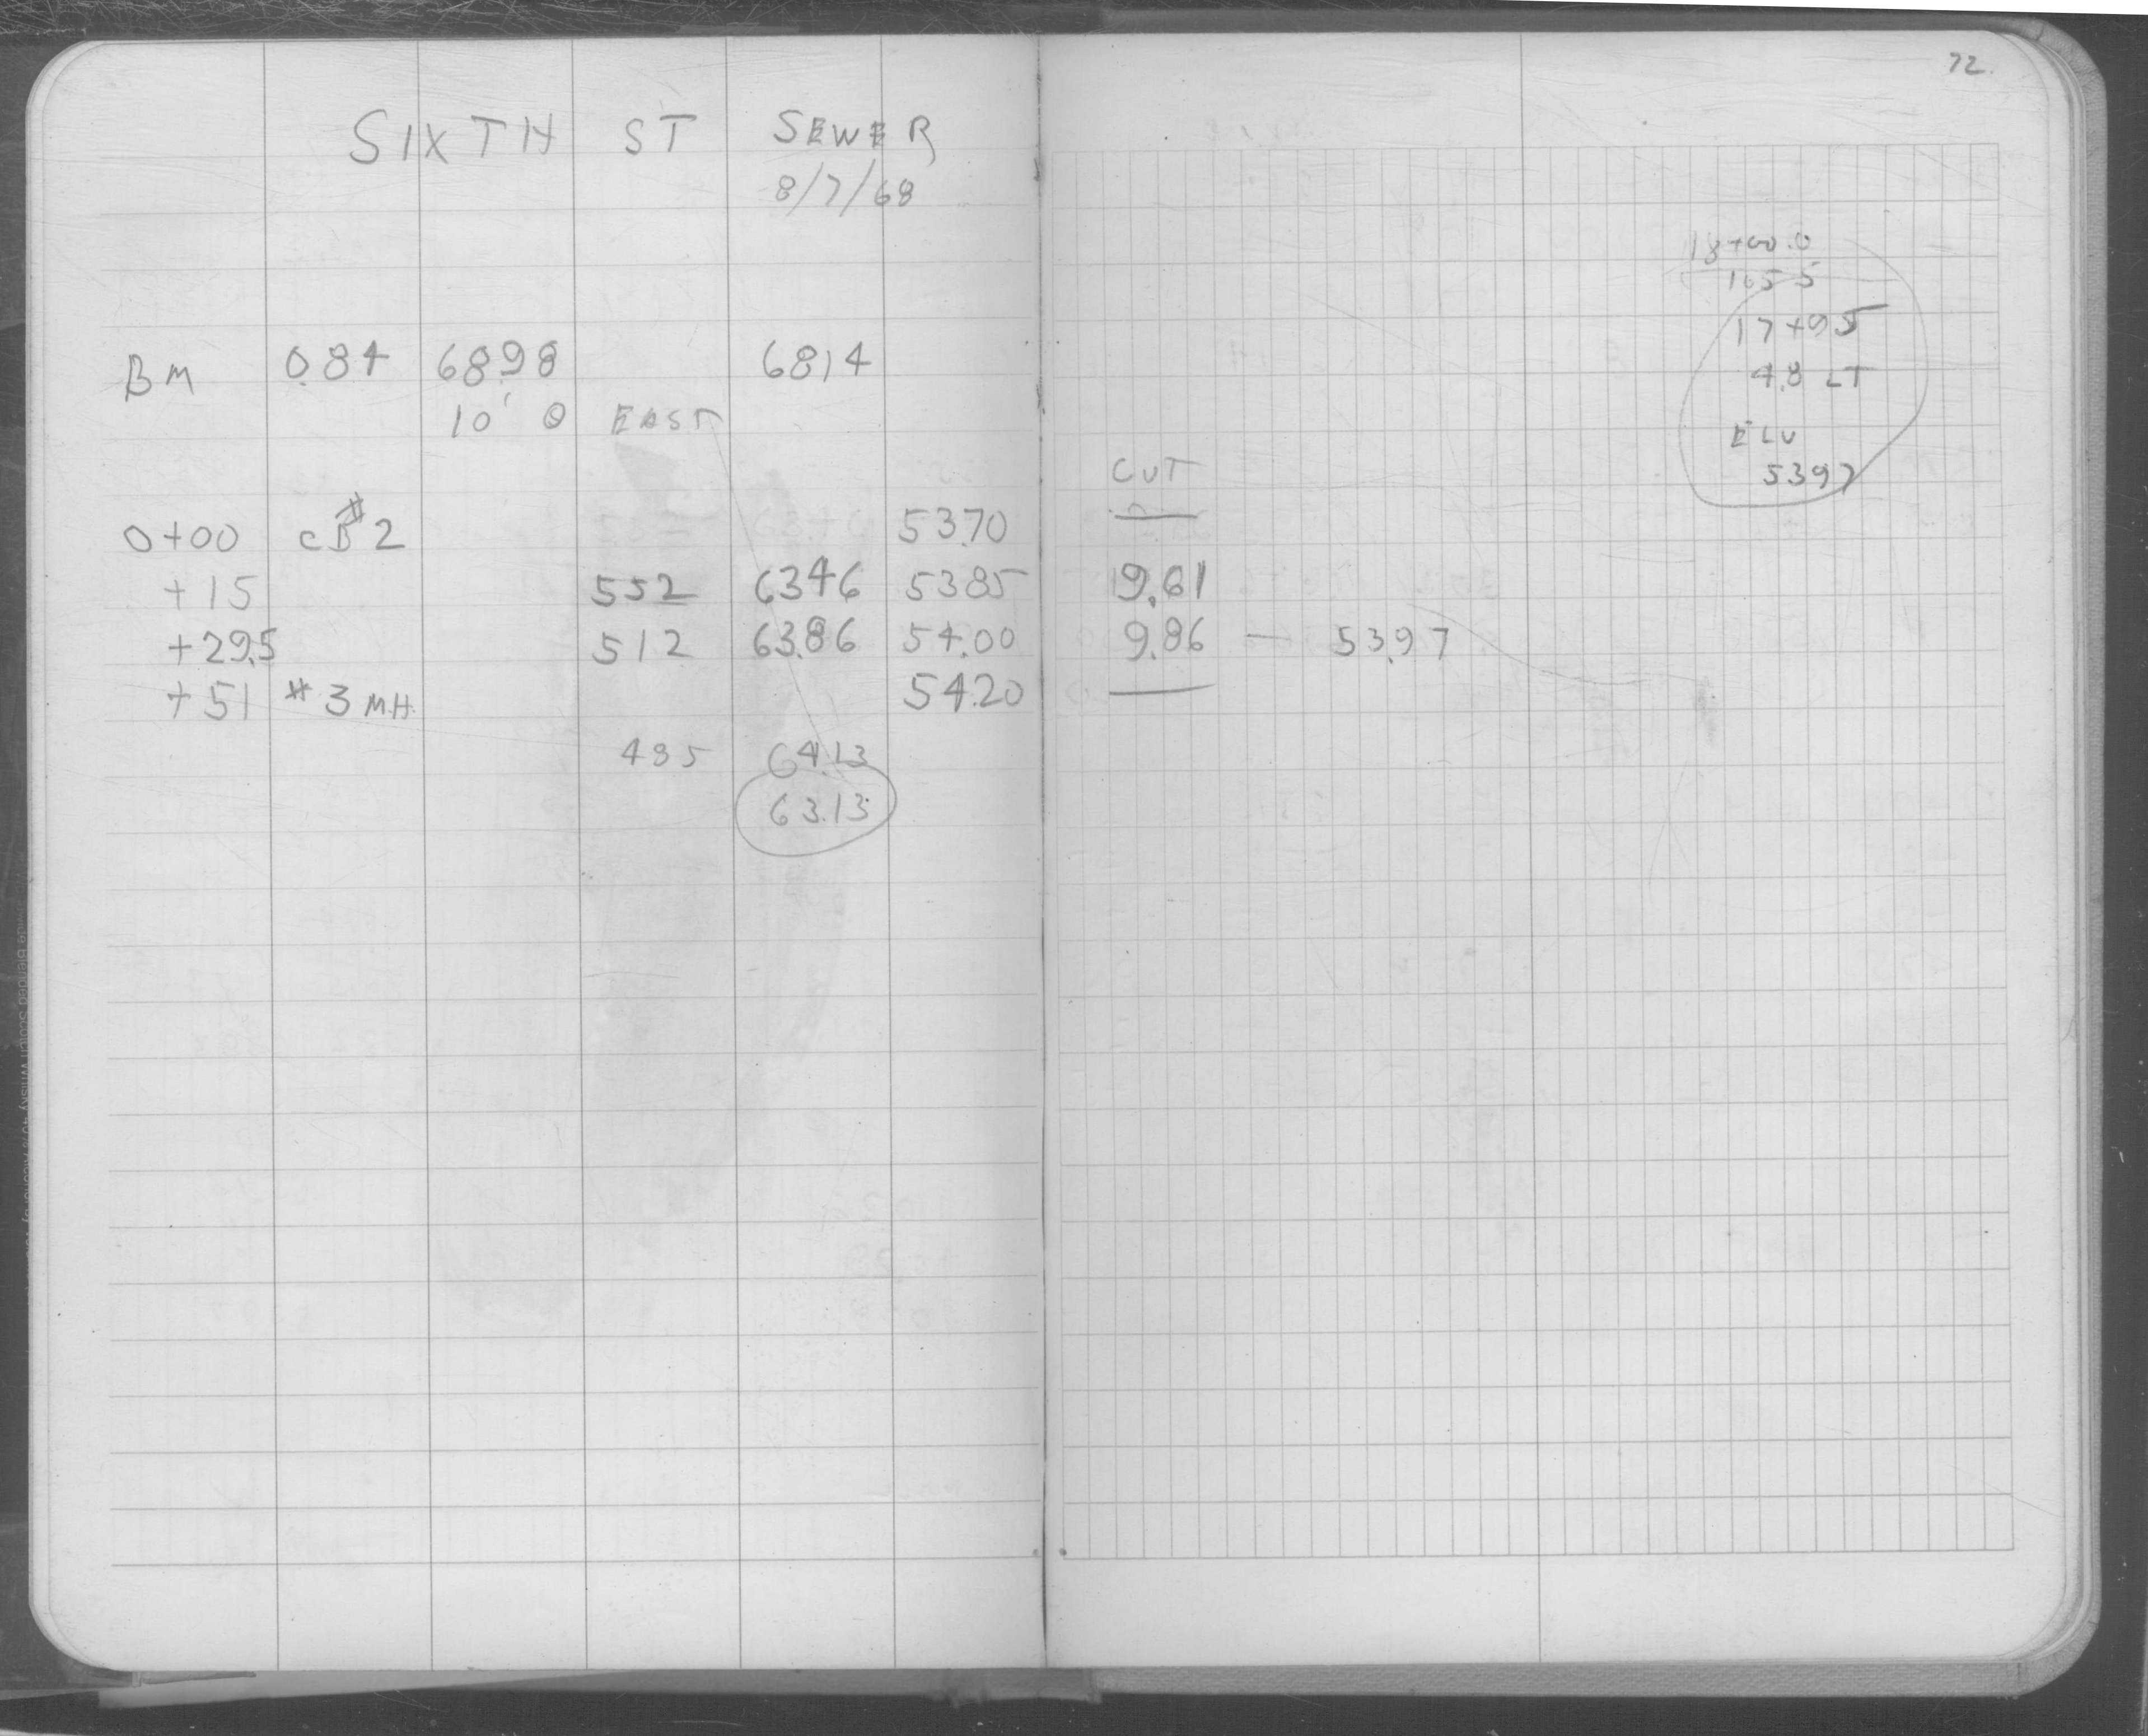 SIXTH ST SEWER
8/7/68
BM 0.84 68.98 68.14
10' O EAST
0+00 CB #2 53.70
+15 552 63.46 53.85
+29.5 512 63.86 54.00
+51 #3 MH 54.20
485 64.13
63.13
72.
18+00.0
105 5
17+95
4.8 LT
ELV
5397
CUT
9.61
9.86 — 53.97